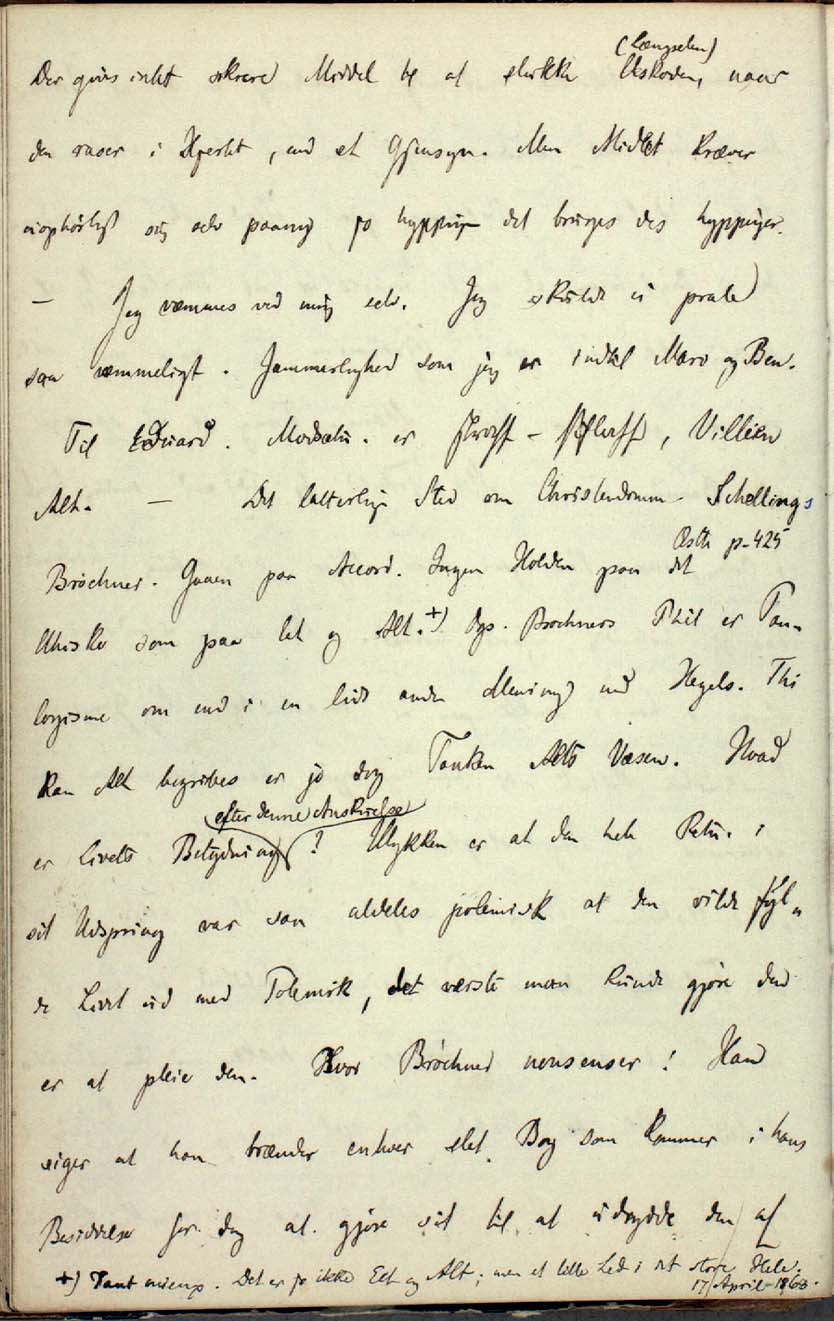 (Længselen)
Der gives intet sikrere Middel til at slukke Ildsvaaden, naar
den raser i Hjertet, end et Gjensyn. Men Midlet kræver
uophörligt sig selv paany jo hyppigere det bruges des hyppigere.
— Jeg væmmes ved mig selv. Jeg skulde ei prale
saa væmmeligt. Jammerlighed som jeg er indtil Marv og Ben.
Til Eduard. Modsætn. er, Villien
Alt. — Det latterlige Sted om Christendommen. Schellings
Æsth p-425
Bröchner. Gaaen paa Accord. Ingen Holden paa det
som paa let og Alt. +) dgs. Bröchners Phil er Pan-
logisme om end i en lidt anden Mening end Hegels. Thi
kan Alt begribes er jo dog Tanken Alts Væsen. Hvad
(efter denne Anskuelse)
er Livets Betydning? Ulykken er at den hele Retn. i
sit Udspring var saa aldeles polemisk at den vilde fyl-
de Livet ud med Polemik, det værste man kunde gjöre den
er at pleie den. Hvor Bröchner nonsenser! Han
siger at han brænder enhver slet Bog som kommer i hans
Besiddelse for dog at gjöre sit til at udrydde den af
+) Tant mieux. Det er jo ikke Eet og Alt; men et lille Led i det store Hele.
17 April - 1863.